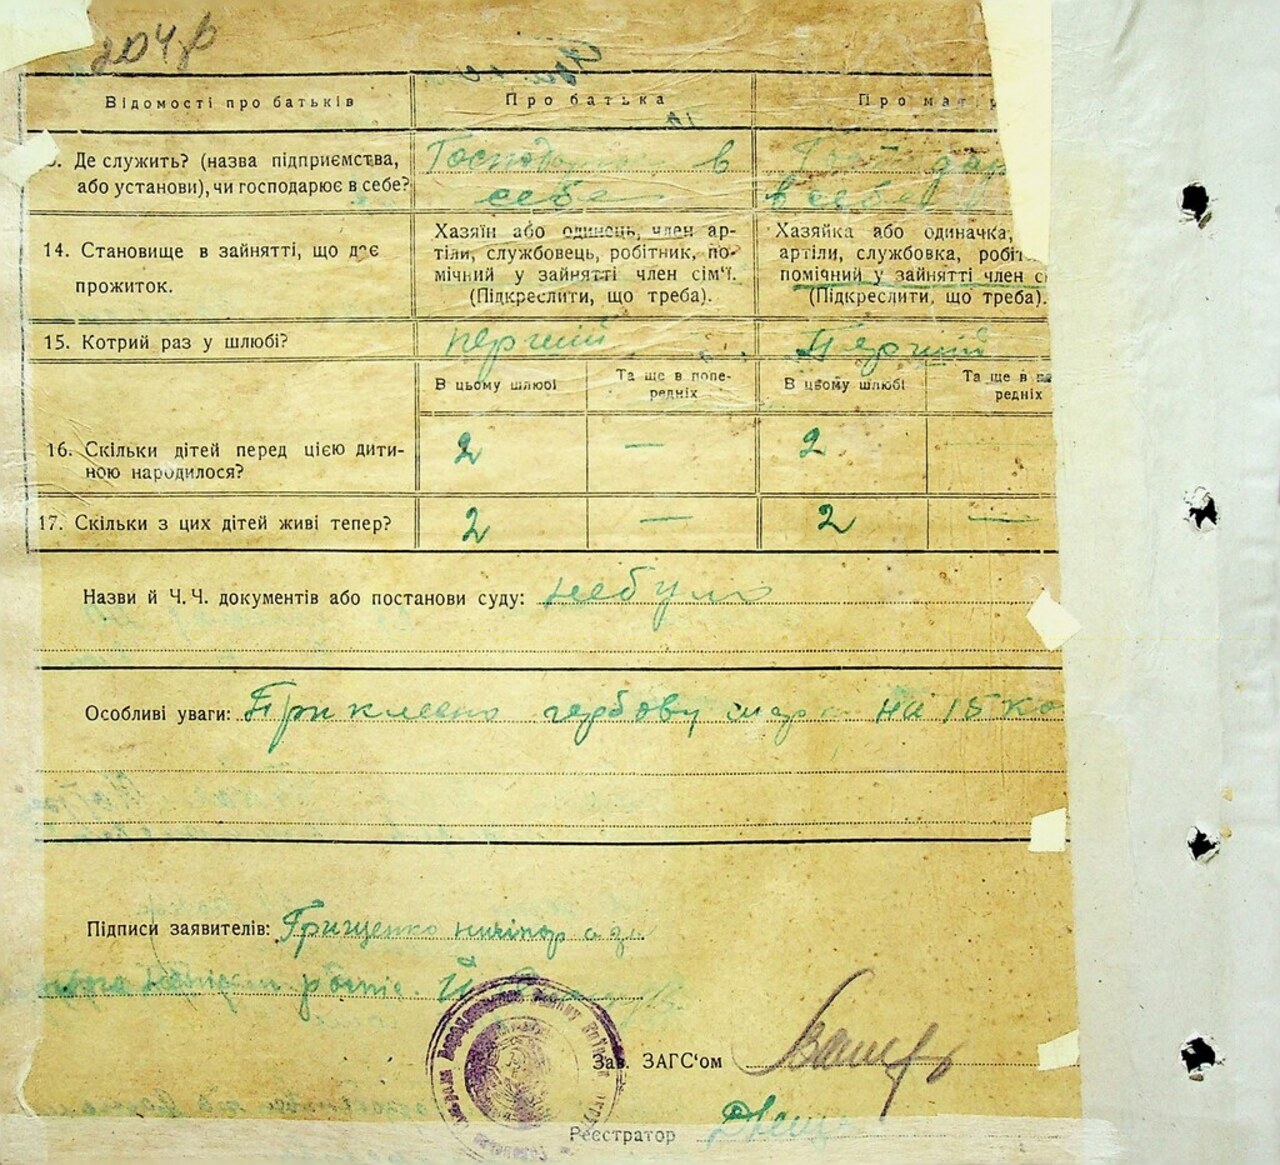 204
Відомості про батьків
Про батька
Про матір
Де служить? (назва підприємства, або установи), чи господарює в себе?
в
себе
в себе
14. Становище в зайнятті, що дає прожиток.
Хазяїн або одинець, член ар-
тіли, службовець, робітник, по-
мічний у зайнятті член сім'ї.
(Підкреслити, що треба).
Хазяйка або одиначка,
артіли, службовка, робіт
помічний у зайнятті член с
(Підкреслити, що треба).
15. Котрий раз у шлюбі?
перший
Перший
В цьому шлюбі
Та ще в попе-
редніх
В цьому шлюбі
Та ще в
редніх
16. Скільки дітей перед цією дити-
ною народилося?
2 — 2
17. Скільки з цих дітей живі тепер?
2 — 2 —
Назви й Ч. Ч. документів або постанови суду: небуло
Особливі уваги: Приклеєно гербову марк на 15 ко
Підписи заявителів: Грищенко ничіпор а за
Зав. ЗАГС'ом
Реєстратор